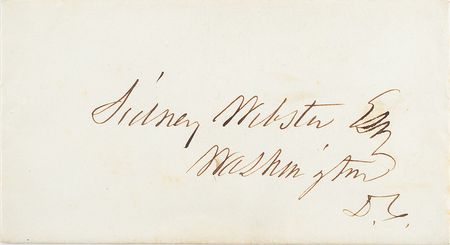 Sidney Webster Esq
Washington
D.C.